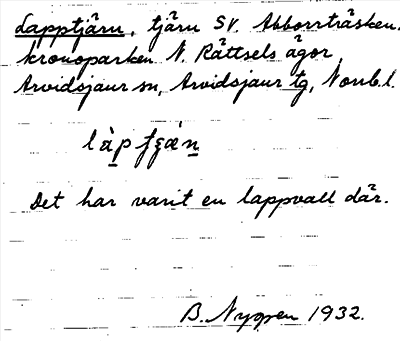 Lapptjärn, tjärn SV. Abborrträsken.
kronoparken N. Rättsels ägor
Arvidsjaur sn, Arvidsjaur tg, Norrb. l.
Det har varit en lappvall där.
B. Nygren 1932.